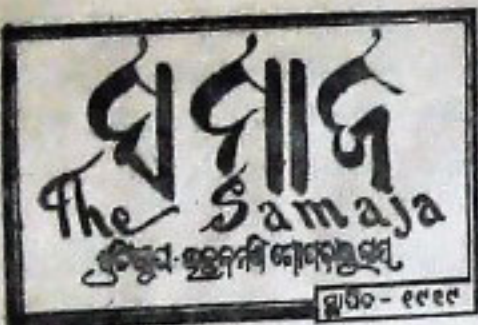 ସମାଜ
The Samaja
ପ୍ରତିଷ୍ଠାତା-ଉତ୍କଳମଣି ଗୋପବନ୍ଧୁ ଦାସ
ସ୍ଥାପିତ - ୧୯୧୯